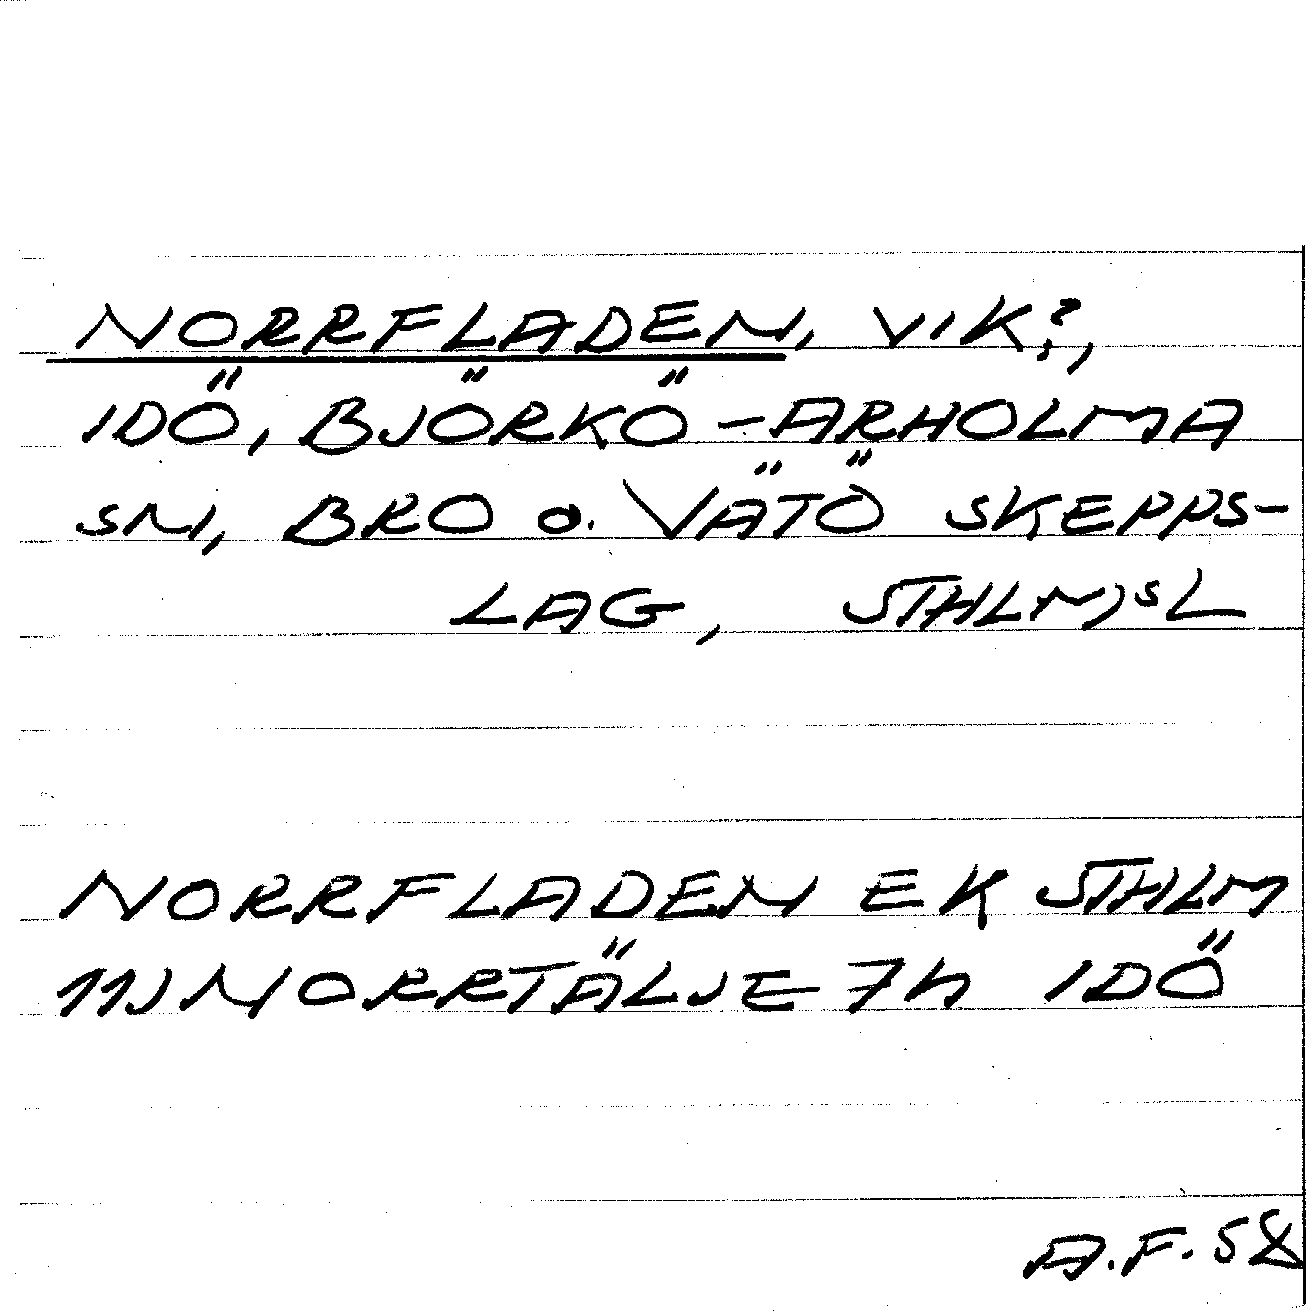 NORRFLADEN, VIK?,
IDÖ, BJÖRKÖ-ARHOLMA
SN, BRO O. VÄTÖ SKEPPS-
LAG, STHLMSL
NORRFLADEN EK STHLM
11J NORRTÄLJE 7h IDÖ
A.F. 58